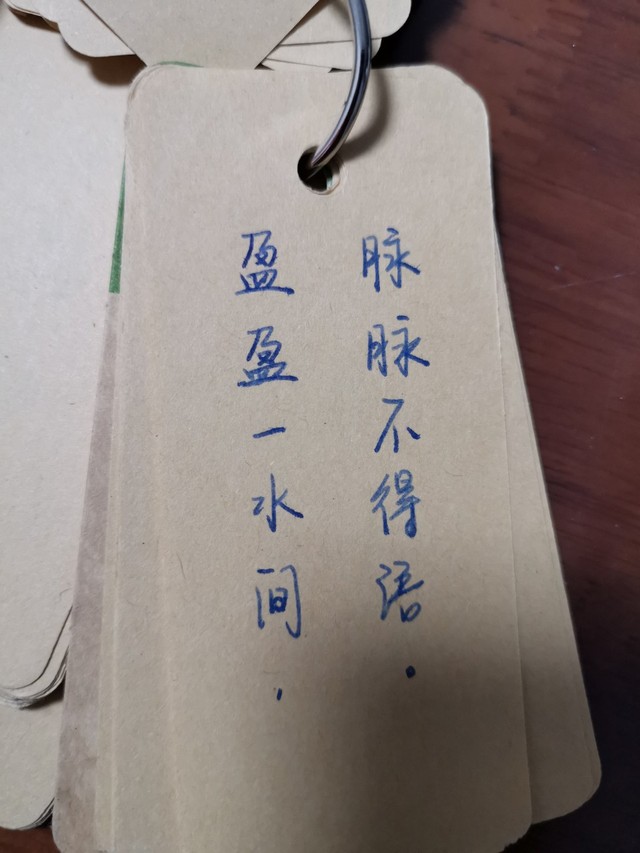 盈盈一水间，
脉脉不得语.